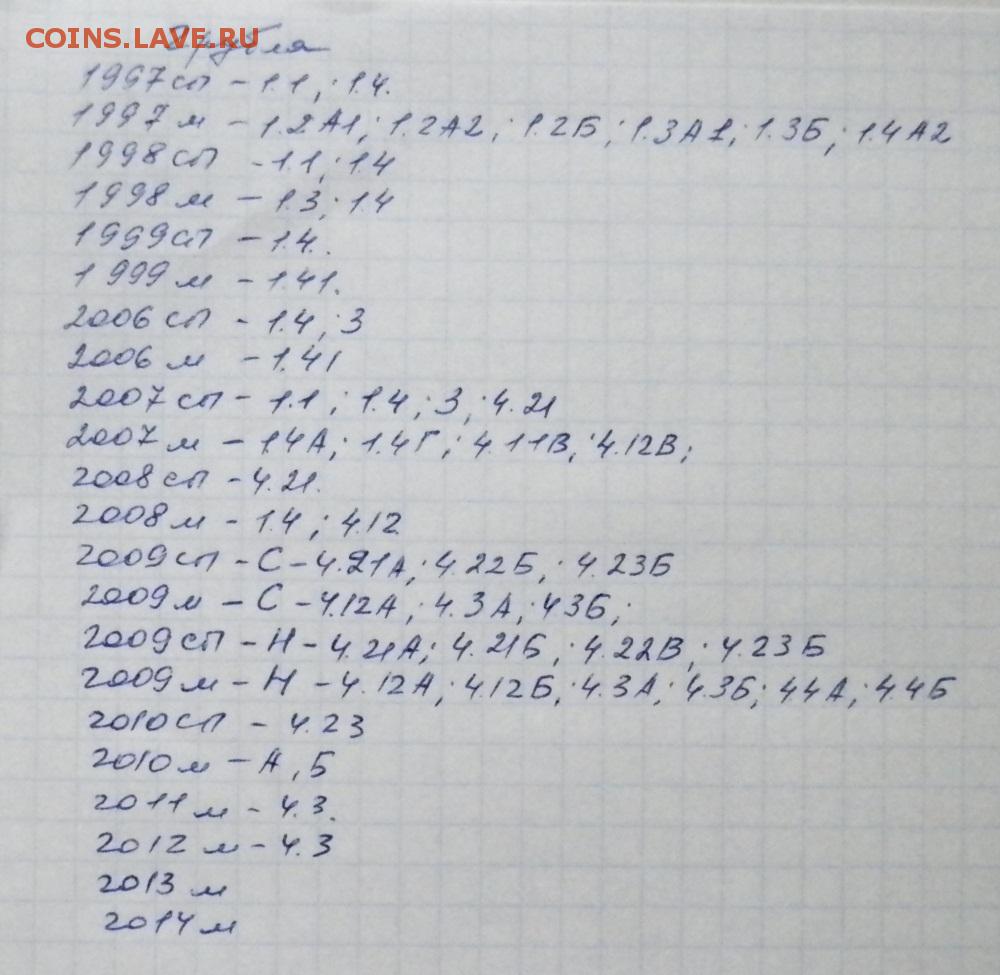 COINS.LAVE.RU
2 рубля
1997 сп - 1.1; 1.4.
1997 м - 1.2А1; 1.2А2; 1.2Б; 1.3А1; 1.3Б; 1.4А2
1998 сп - 1.1; 1.4
1998 м - 1.3; 1.4
1999 сп - 1.4.
1999 м - 1.41.
2006 сп - 1.4; 3
2006 м - 1.41
2007 сп - 1.1; 1.4; 3; 4.21
2007 м - 1.4А; 1.4Г; 4.11В; 4.12В;
2008 сп - 4.21.
2008 м - 1.4; 4.12
2009 сп - С - 4.21А; 4.22Б; 4.23Б
2009 м - С - 4.12А; 4.3А; 43Б;
2009 сп - Н - 4.21А; 4.21Б; 4.22В; 4.23Б
2009 м - Н - 4.12А; 4.12Б; 4.3А; 4.3Б; 44А; 4.4Б
2010 сп - 4.23
2010 м - А, Б
2011 м - 4.3.
2012 м - 4.3
2013 м
2014 м